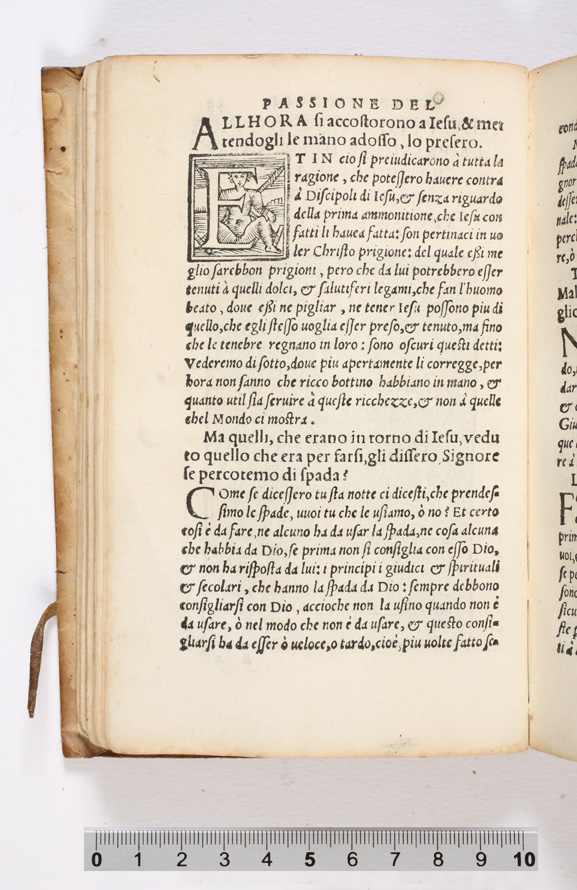 PASSIONE DEL
ALLHORA si accostorono a Iesu, & met
tendogli le mano adosso, lo presero.
ET IN cio si preiudicarono à tutta la
ragione, che potessero hauere contra
à Discipoli di Iesu, & senza riguardo
della prima ammonitione, che Iesu con
fatti li hauea fatta: son pertinaci in uo
ler Christo prigione: del quale essi me
glio sarebbon prigioni, pero che da lui potrebbero esser
tenuti à quelli dolci, & salutiferi legami, che fan l'huomo
beato, doue essi ne pigliar, ne tener Iesu possono piu di
quello, che egli stesso uoglia esser preso, & tenuto, ma fino
che le tenebre regnano in loro: sono oscuri questi detti:
Vederemo di sotto, doue piu apertamente li corregge, per
hora non sanno che ricco bottino habbiano in mano, &
quanto util sia seruire à queste ricchezze, & non à quelle
chel Mondo ci mostra.
Ma quelli, che erano in torno di Iesu, vedu
to quello che era per farsi, gli dissero Signore
se percotemo di spada?
COme se dicessero tu sta notte ci dicesti, che prendes=
simo le spade, uuoi tu che le usiamo, ò no? Et certo
cosi è da fare, ne alcuno ha da usar la spada, ne cosa alcuna
che habbia da Dio, se prima non si consiglia con esso Dio,
& non ha risposta da lui: i principi i giudici & spirituali
& secolari, che hanno la spada da Dio: sempre debbono
consigliarsi con Dio, accioche non la usino quando non è
da usare, ò nel modo che non è da usare, & questo consi=
gliarsi ha da esser ò ueloce, o tardo, cioè, piu uolte fatto se=
0 1 2 3 4 5 6 7 8 9 10